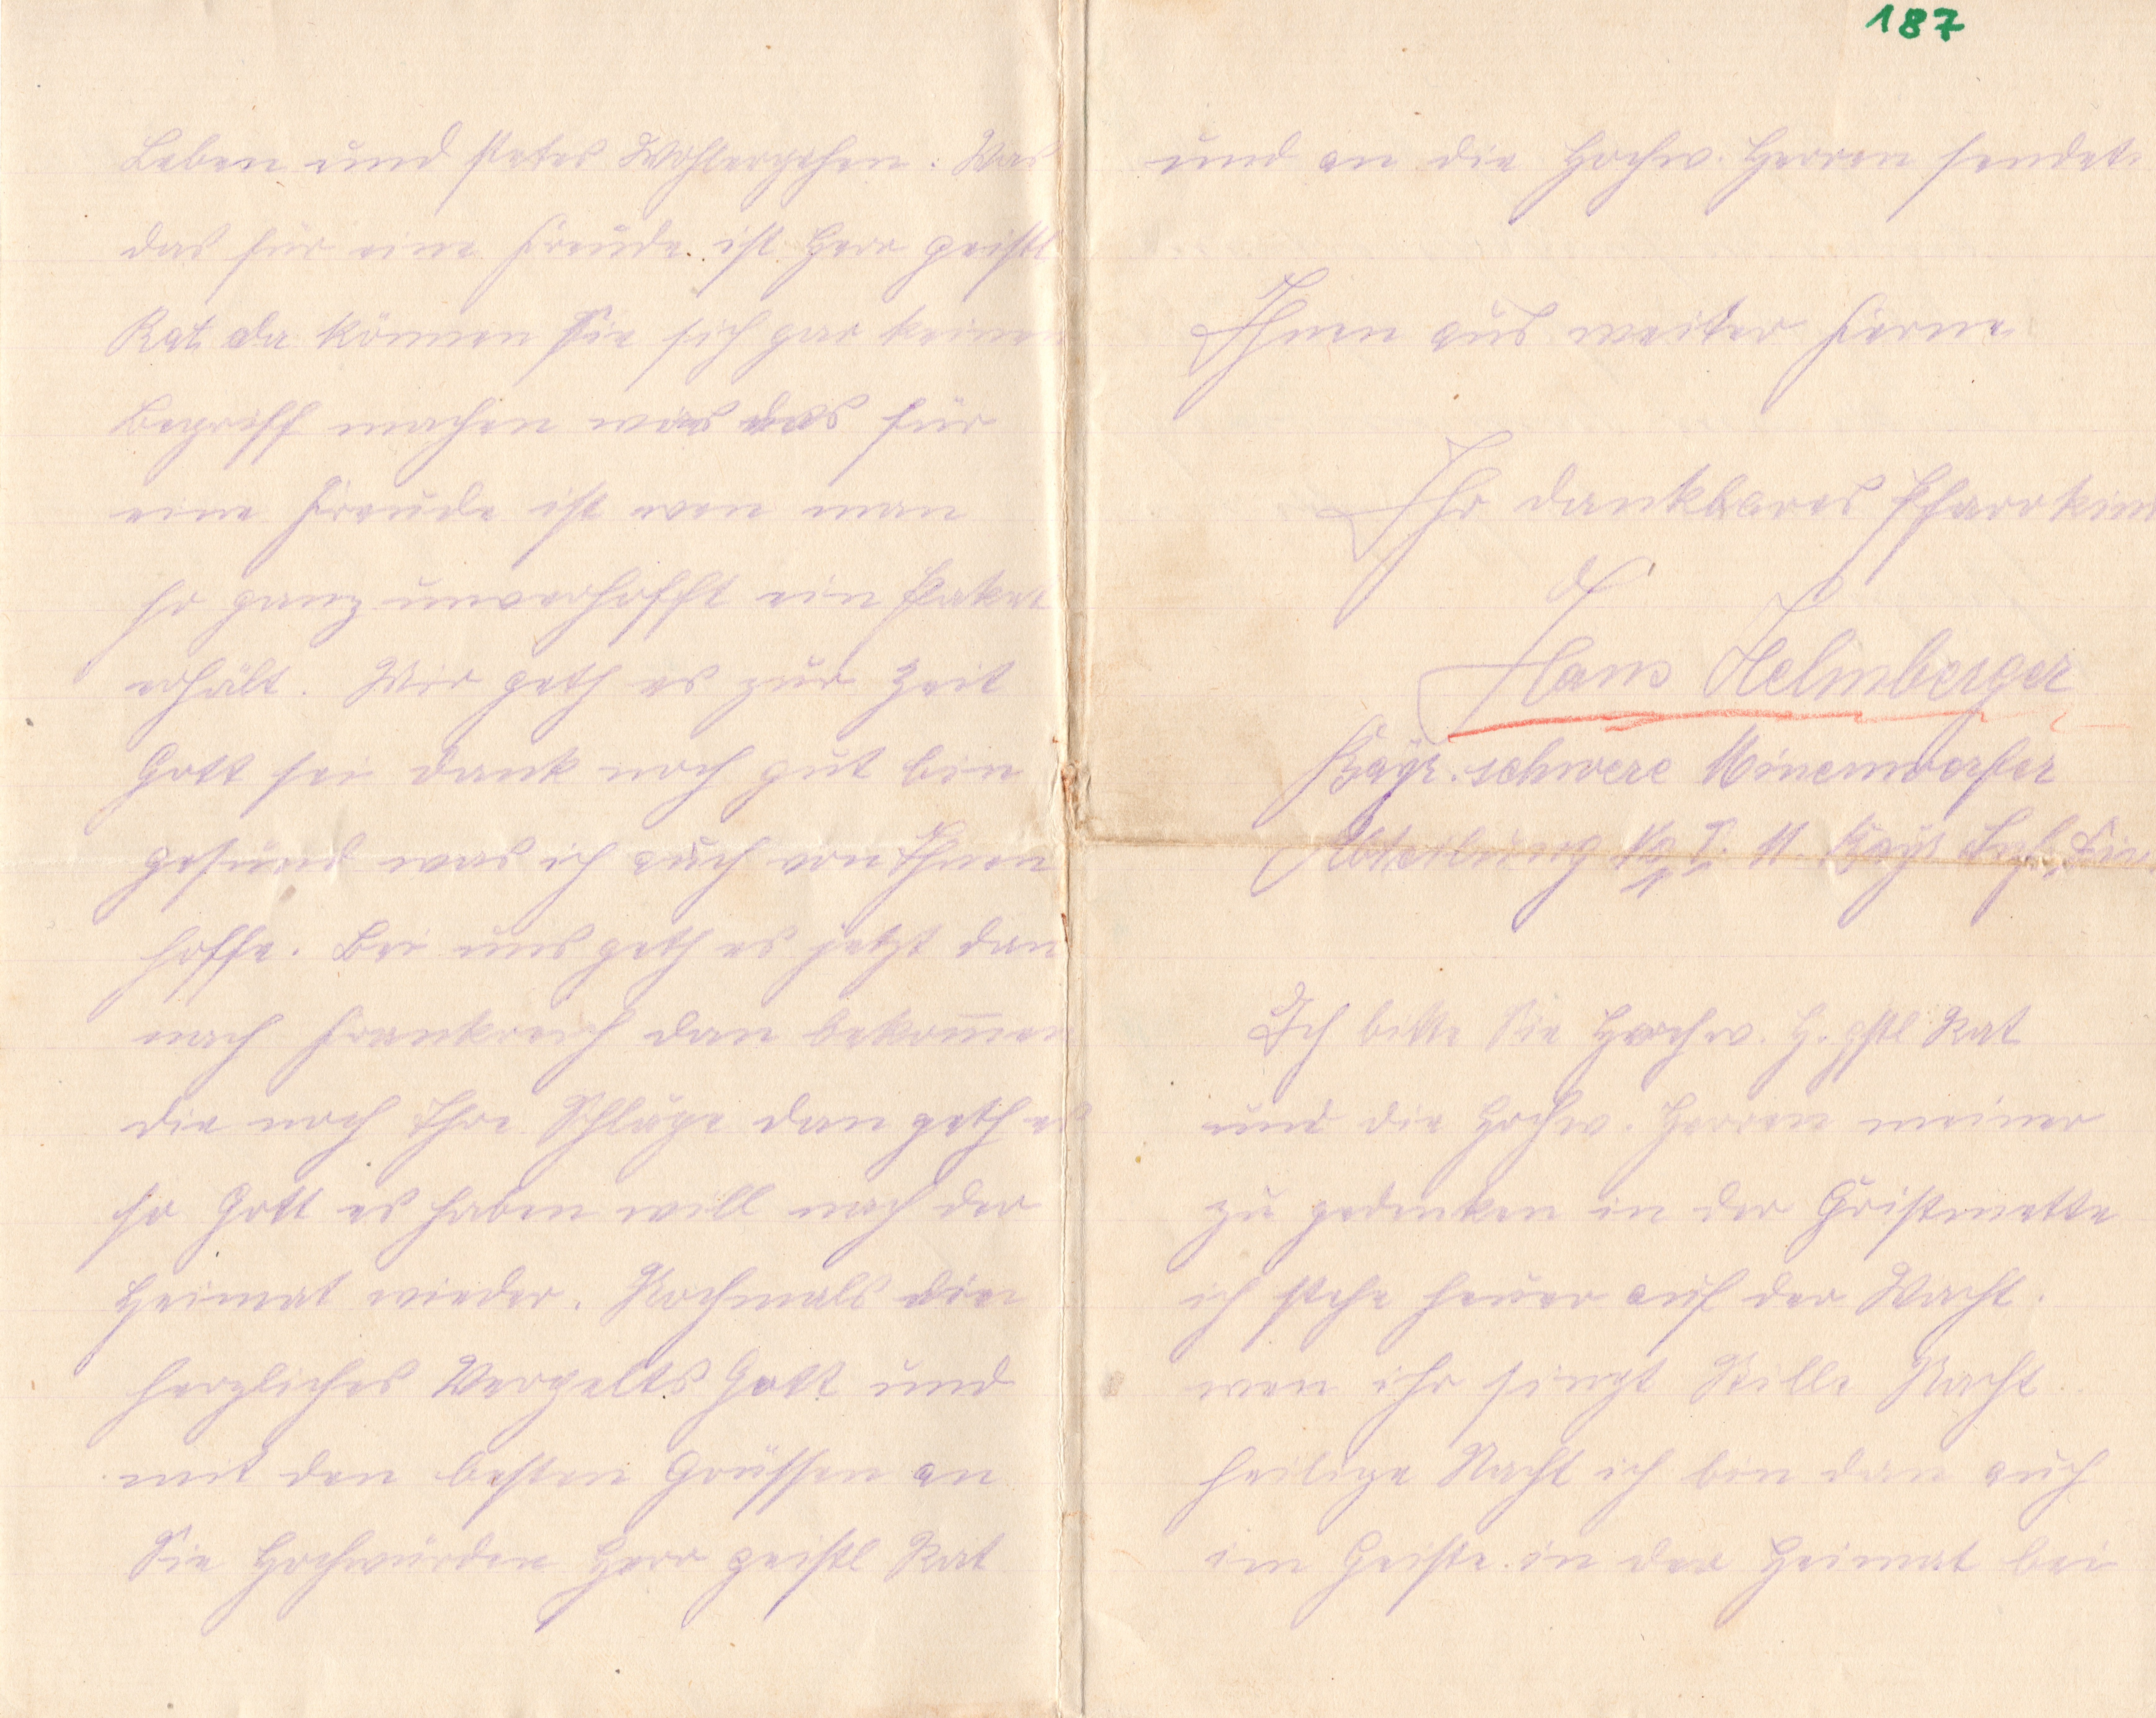 187
Leben und stetes Wohlergehen. Was
das für eine Freude ist Herr geistl
Rat da können Sie sich gar keinen
Begriff machen was das für
eine Freude ist wen man
so ganz unverhofft ein Paket
erhält. Mir geth es zur Zeit
Gott sei dank noch gut bin
gesund was ich auch von Ihnen
hoffe. Bei uns geth es jetzt dan
nach Frankreich dan bekom̅en
die noch Ihre Schläge dan geth es
so Gott es haben will nach der
Heimat wieder. Nochmals ein
herzliches Vergelts Gott und
mit den besten Grüssen an
Sie Hochwürden Herr geistl Rat
und an die Hochw. Herren sendet
Ihnen aus weiter Ferne
Ihr dankbares Pfarrkind
Hans Helmberger
Bayr. schwere Minenwerfer
Abteilung No I. 11. Bayr Inf. Div.
Ich bitte Sie Hochw. H. gstl Rat
und die Hochw. Herren meiner
zu gedenken in der Christmette
ich stehe heuer auf der Wacht.
wen ihr singt Stille Nacht
heilige Nacht ich bin dan auch
im Geiste in der Heimat bei